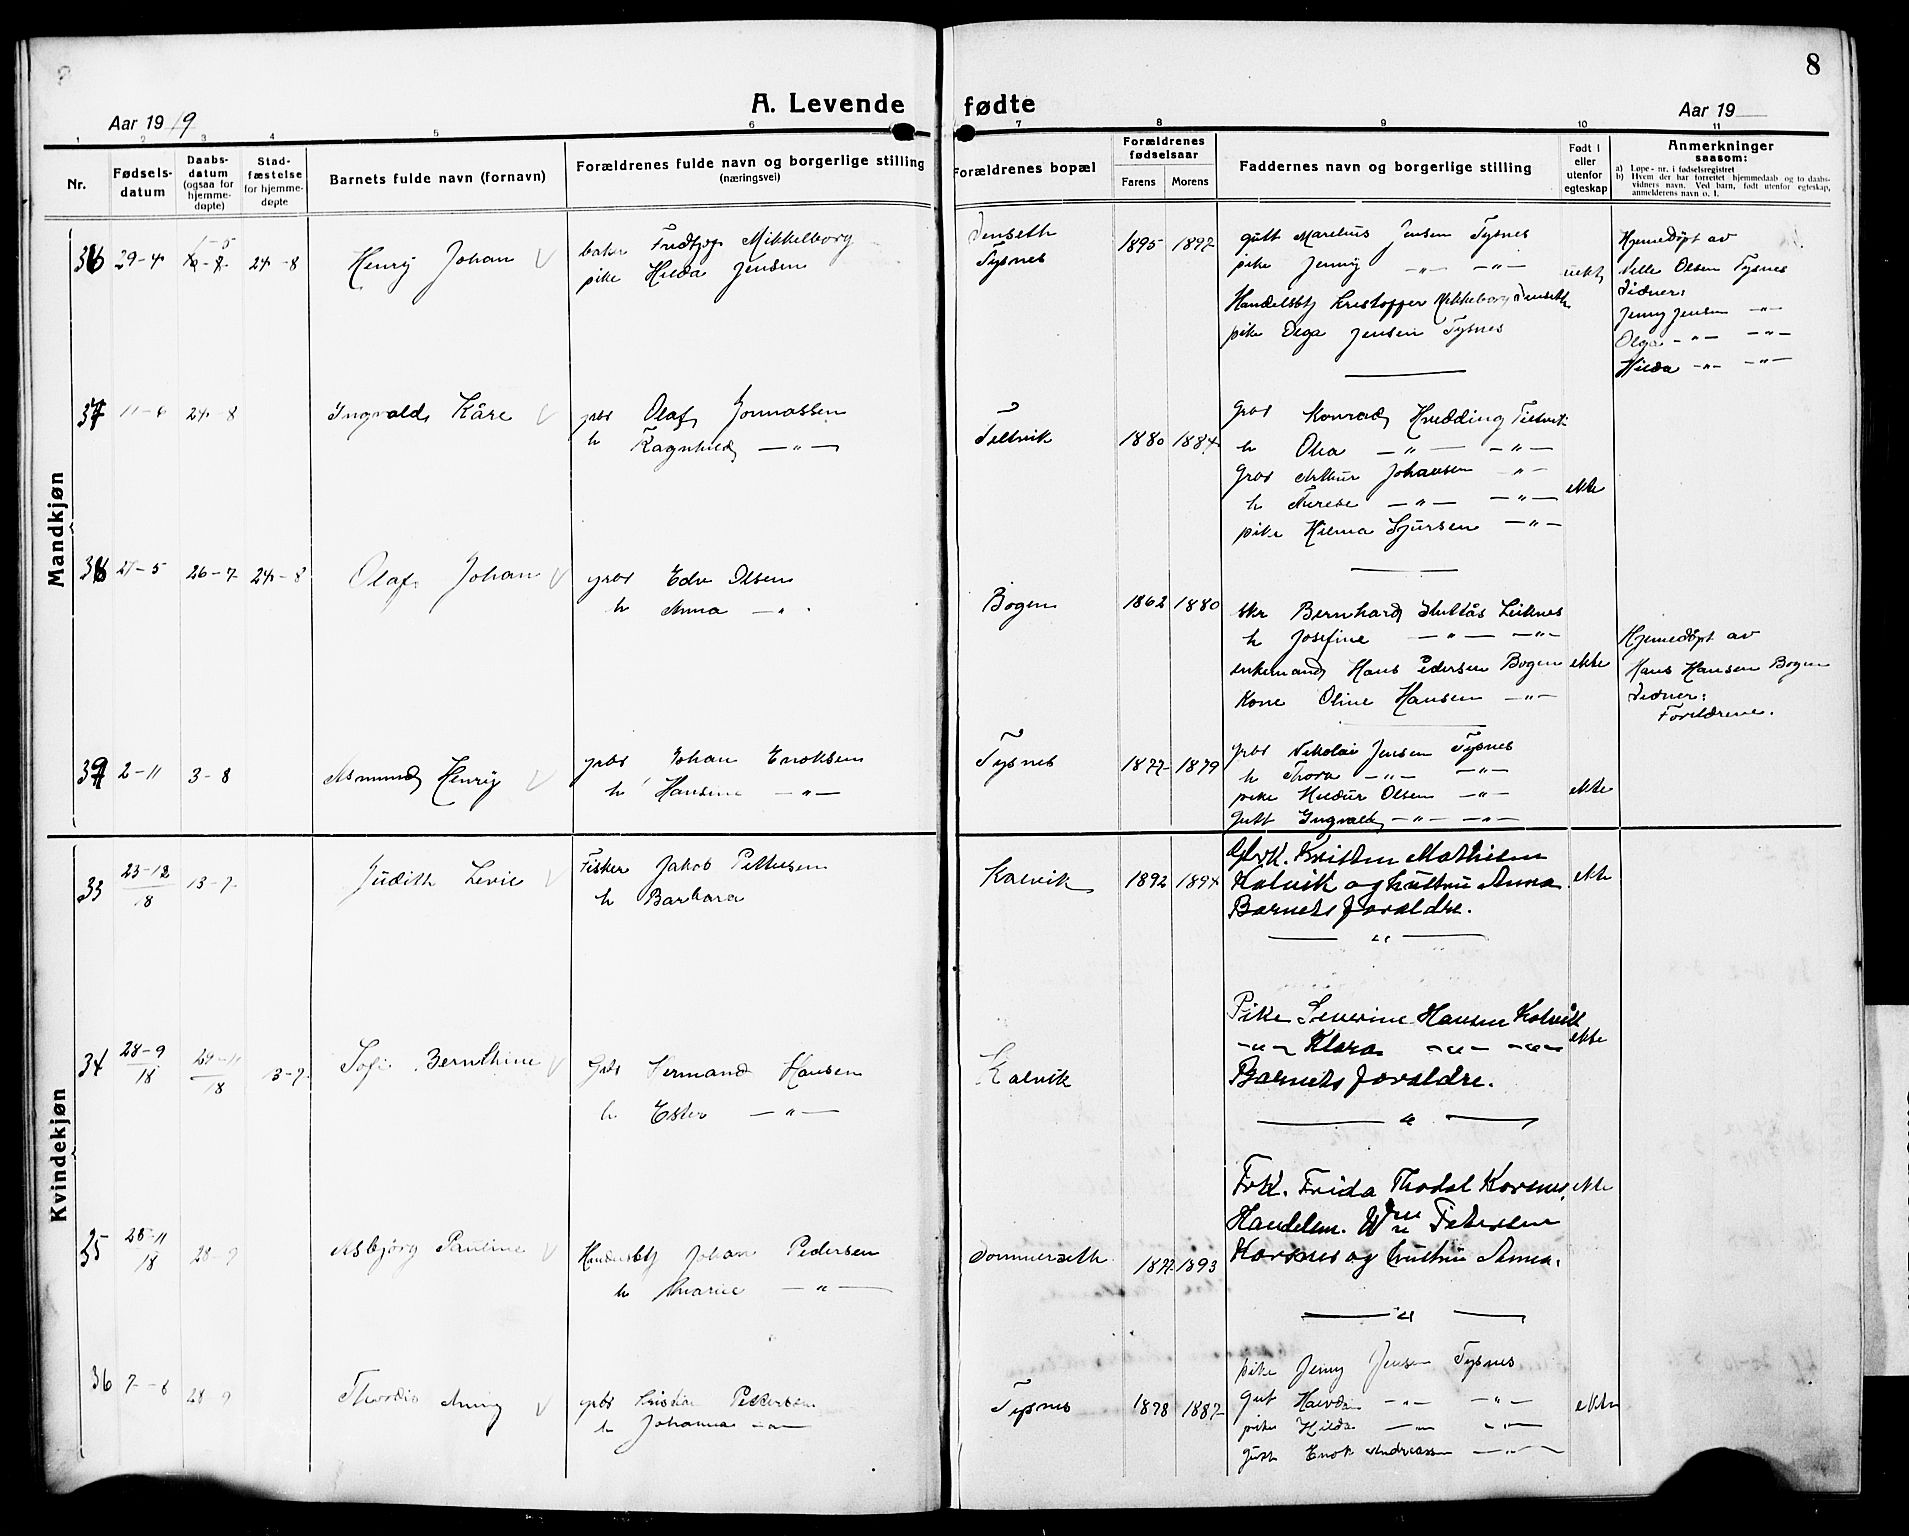 8
A. Levende fødte
Aar 1919
Aar 19
1 2 3 4 5 6 7 8 9 10 11
Nr.
Fødsels-
datum
Daabs-
datum
(ogsaa for
hjemme-
døpte)
Stad-
fæstelse
for hjemme-
døpte
Barnets fulde navn (fornavn)
Forældrenes fulde navn og borgerlige stilling
(næringsvei)
Forældrenes bopæl
Forældrenes
fødselsaar
Farens
Morens
Faddernes navn og borgerlige stilling
Født i
eller
utenfor
egteskap
Anmerkninger
saasom:
a) Løpe-nr. i fødselsregistret
b) Hvem der har forrettet hjemmedaab og to daabs-
vidners navn. Ved barn, født utenfor egteskap,
anmelderens navn o. l.
Mandkjøn
36 29-4 24-8
Henry Johan
Fridtjof Mikkelborg
pike Hilda Jensen
Tysnes
1895 1892
gutt Marelius Jensen Tysnes
pike Jenny -"- -"-
Handelsbtj Kristoffer Mikkelborg
pike Olga Jensen Tysnes
uekte
Hjemedøpt av
Olsen Tysnes
Vidner:
Jenny Jensen -"-
Olga -"- -"-
Hilda -"- -"-
37 11-6 24-8
Ingvald Kåre
gbr Olaf Jonnassen
h Ragnhild -"-
1880 1884
gbr Konrad Hvedding
h Olia -"- -"-
gbr Arthur Johansen -"-
h Therese -"- -"-
pike Hilma Sjursen -"-
ekte
38 21-5 26-7 24-8
Olaf Johan
gbr Edv Olsen
h Anna -"-
Bogen
1862 1880
Bernhard Leiknes
h Josefine -"- -"-
enkemand Hans Pedersen Bogen
Kone Oline Hansen -"-
ekte
Hjemedøpt av
Hans Hansen Bogen
Vidner:
Foreldrene.
39 2-11 3-8
Asmund Henry
gbr Johan Enoksen
h Hansine -"-
Tysnes
1877 1879
gbr Nikolai Jensen Tysnes
h Thora -"- -"-
pike Hildur Olsen -"-
Gutt Ingvald -"- -"-
ekte
Kvindekjøn
33 23-12/18 13-7
Judith Levie
Fisker Jakob Pettersen
h Barbara
Kalvik
1892 1894
Gbrk. Kristen Mathisen
Kalvik og hustru Anna
Barnets forældre.
ekte
34 28-9/18 24-11/18 13-7
Sofie Bernthine
Gbr Hermand Hansen
h Ester -"-
Kalvik
Pike Severine Hansen Kalvik
-"- Klara -"- -"-
Barnets forældre.
ekte
35 28-11/18 28-9
Asbjørg Pauline
Handelsbtj Johan Pedersen
h Marie -"-
Tommerseth
1877 1893
Frk. Frida Thodal Korsnes,
Handelsm. Wm Petersen
Korsnes og hustru Anna.
ekte
36 7-8 28-9
Thordis
gbr Kristian Pettersen
h Johanna -"-
Tysnes
1878 1887
pike Jenny Jensen Tysnes
gut Halvdan -"- -"-
pike Hilda -"- -"-
gutt Enok Andreassen -"-
ekte